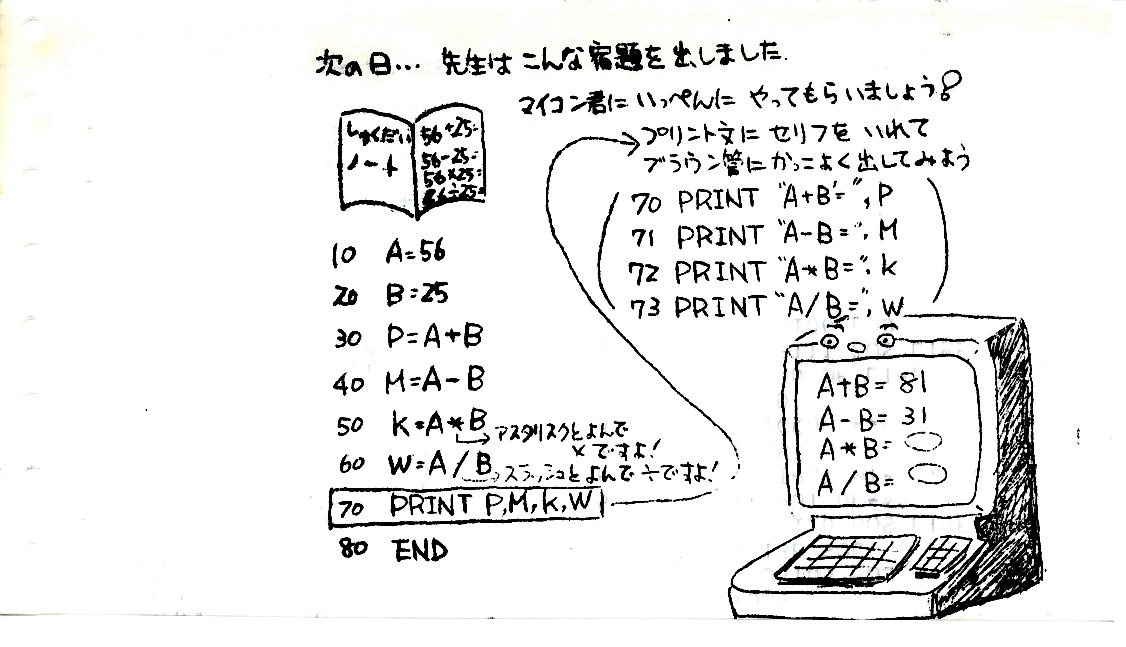 次の日… 先生は こんな宿題を出しました.
マイコン君に いっぺんに やってもらいましょう!
しゅくだい
ノート
56+25=
56-25=
56×25=
56÷25=
プリント文に セリフを いれて
ブラウン管に かっこよく出してみよう
70 PRINT "A+B=", P
71 PRINT "A-B=", M
72 PRINT "A*B=", K
73 PRINT "A/B=", W
10 A=56
20 B=25
30 P=A+B
40 M=A-B
50 K=A*B
アスタリスクとよんで
×ですよ!
60 W=A/B
スラッシュとよんで ÷ですよ!
70 PRINT P,M,K,W
80 END
A+B= 81
A-B= 31
A*B=
A/B=